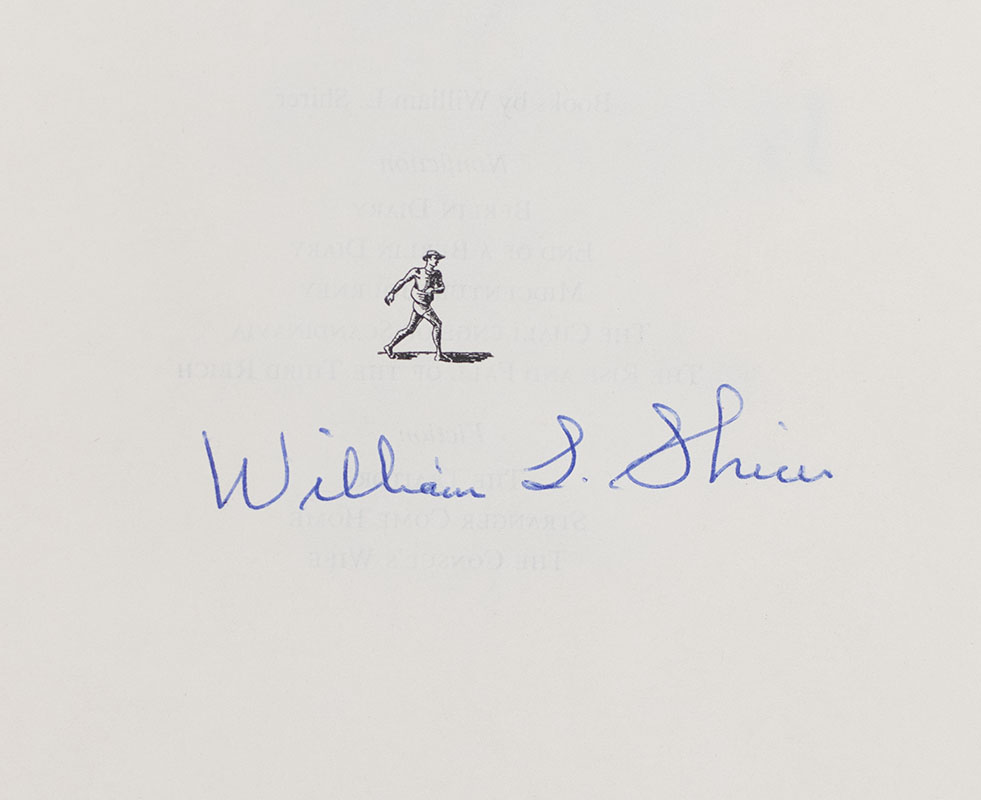 Books by William L. Shirer
Nonfiction
BERLIN DIARY
END OF A BERLIN DIARY
MIDCENTURY JOURNEY
THE CHALLENGE OF SCANDINAVIA
THE RISE AND FALL OF THE THIRD REICH
Fiction
William L. Shirer
THE
STRANGER COME HOME
THE CONSUL'S WIFE